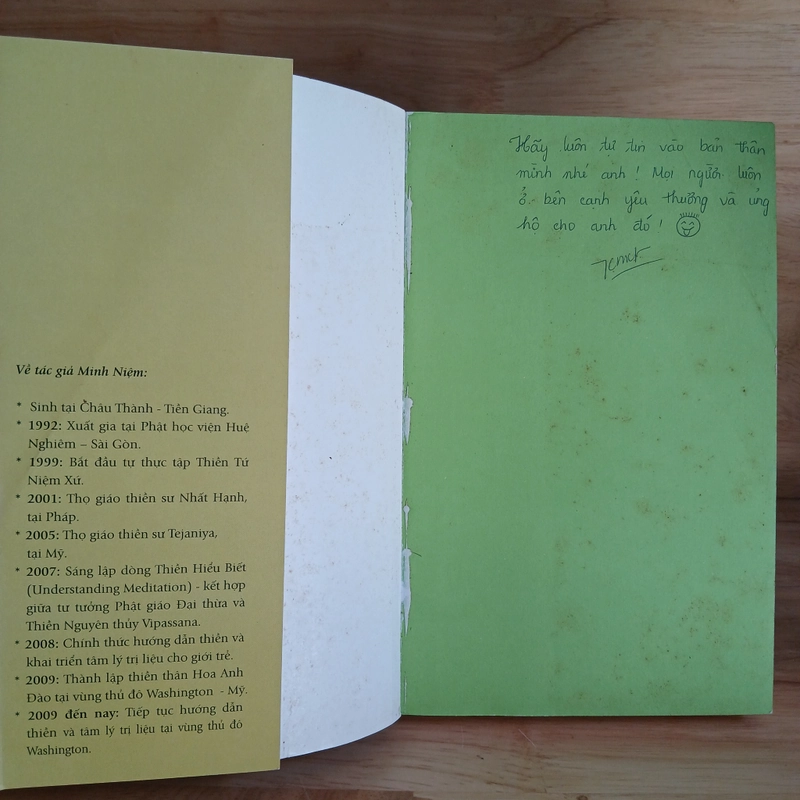 Về tác giả Minh Niệm:
* Sinh tại Châu Thành - Tiền Giang.
* 1992: Xuất gia tại Phật học viện Huệ
Nghiêm – Sài Gòn.
* 1999: Bắt đầu tự thực tập Thiền Tứ
Niệm Xứ.
* 2001: Thọ giáo thiền sư Nhất Hạnh,
tại Pháp.
* 2005: Thọ giáo thiền sư Tejaniya,
tại Mỹ.
* 2007: Sáng lập dòng Thiền Hiểu Biết
(Understanding Meditation) - kết hợp
giữa tư tưởng Phật giáo Đại thừa và
Thiền Nguyên thủy Vipassana.
* 2008: Chính thức hướng dẫn thiền và
khai triển tâm lý trị liệu cho giới trẻ.
* 2009: Thành lập thiền thân Hoa Anh
Đào tại vùng thủ đô Washington - Mỹ.
* 2009 đến nay: Tiếp tục hướng dẫn
thiền và tâm lý trị liệu tại vùng thủ đô
Washington.
Hãy luôn tự tin vào bản thân
mình nhé anh! Mọi người luôn
ở bên cạnh yêu thương và ủng
hộ cho anh đó!